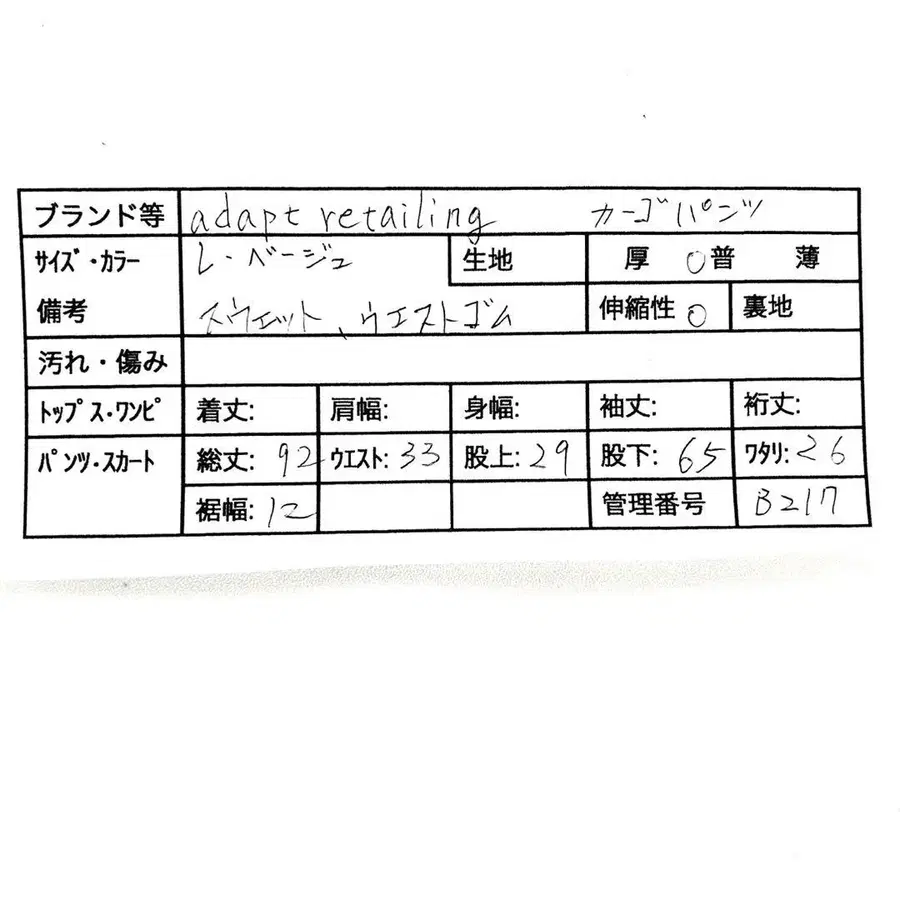 ブランド等 adapt retailing カーゴパンツ
サイズ・カラー L・ベージュ 生地 厚 ○普 薄
備考 スウェット、ウエストゴム 伸縮性 ○ 裏地
汚れ・傷み
トップス・ワンピ 着丈: 肩幅: 身幅: 袖丈: 裄丈:
パンツ・スカート 総丈: 92 ウエスト: 33 股上: 29 股下: 65 ワタリ: 26
裾幅: 12 管理番号 B217